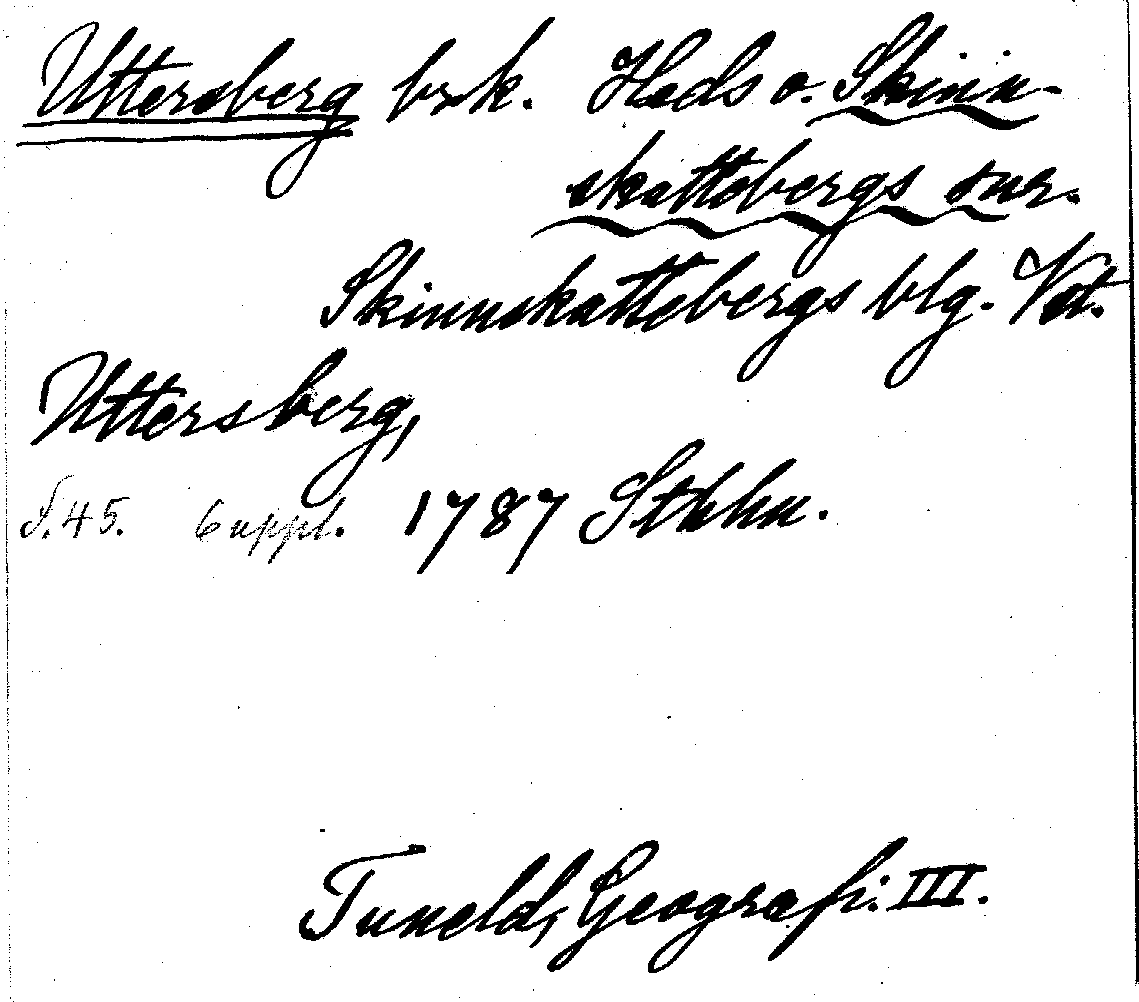 Uttersberg brk. Heds o. Skinn-
skattebergs snr.
Skinnskattebergs blg. Vstl.
Uttersberg,
s. 45. 6 uppl. 1787 Sthlm.
Tuneld, Geografi. III.